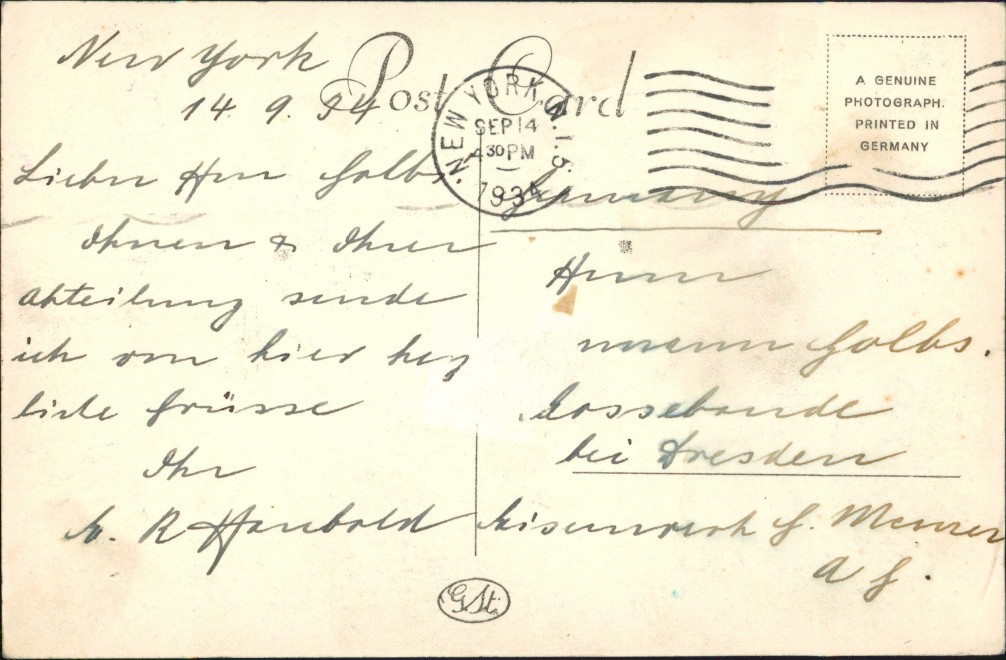 New York
14. 9. 34
Post Card
NEW YORK, N.Y. 15
SEP 14
4 30 PM
1934
A GENUINE
PHOTOGRAPH.
PRINTED IN
GERMANY
Lieber Herr Golbs
Ihnen & Ihrer
Abteilung sende
ich von hier herz
liche Grüsse
Ihr
R Haubold
Germany
Herrn
Golbs.
Cossebaude
bei Dresden
Eisenwerk G. Meurer
A G.
GSt.